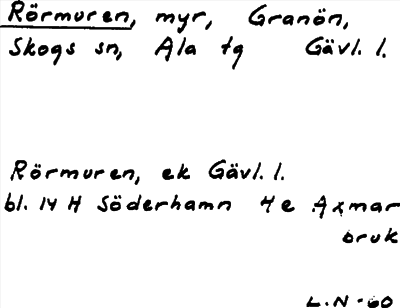 Rörmuren, myr, Granön,
Skogs sn, Ala tg Gävl. l.
Rörmuren, ek Gävl. l.
bl. 14 H Söderhamn 4 e Axmar
bruk
L.N -60